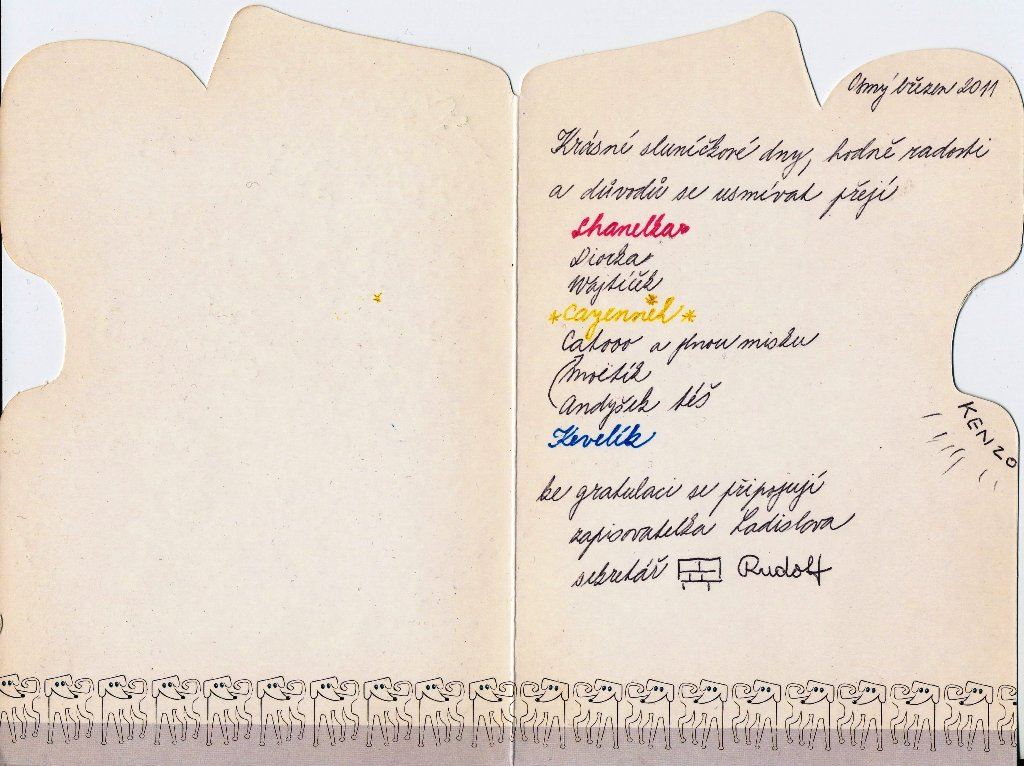 Osmý březen 2011
Krásné sluníčkové dny, hodně radosti
a důvodů se usmívat přejí
Chanelka
Diorka
Wojtíšek
*Cayennek*
Catooo a plnou misku
Moetík
Andyšek též
Kevelík
KENZO
ke gratulaci se připojují
zapisovatelka Ladislava
sekretář Rudolf